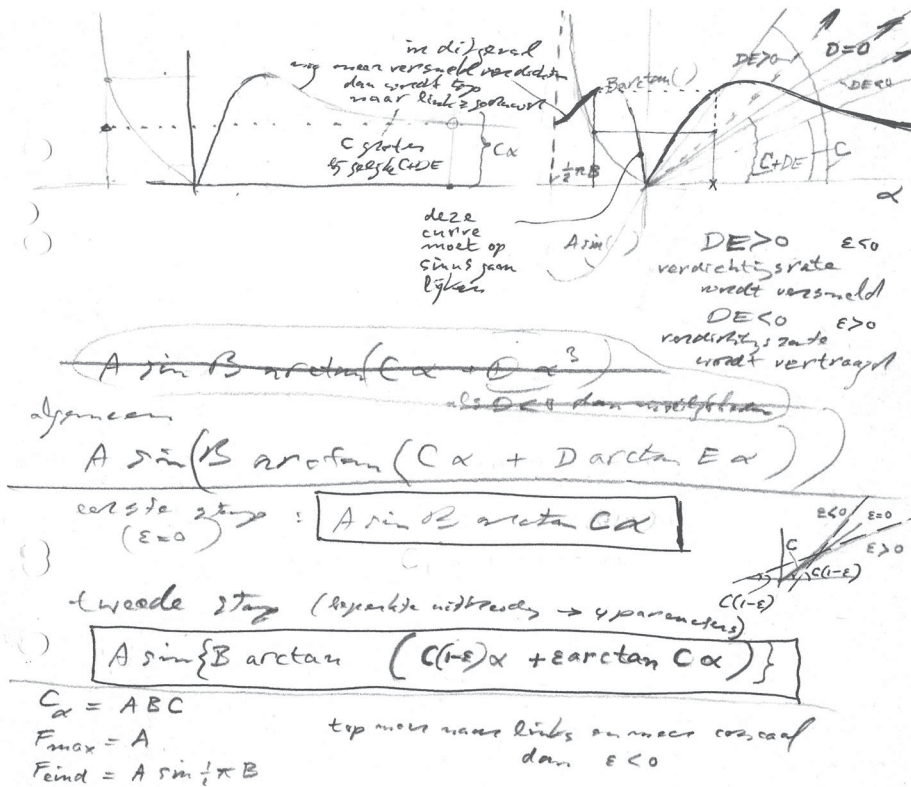 in dit geval
nog meer versneld verdichten
dan wordt top
naar links geschoven
C groter
bij gelijke C+DE
Cα
½πB
Barctan( )
DE>0
D=0
DE<0
C+DE
C
x
α
deze
curve
moet op
sinus gaan
lijken
A sin( )
DE>0 ε<0
verdichtingsrate
wordt versneld
DE<0 ε>0
verdichtingsrate
wordt vertraagd
A sin B arctan(C α + D α³)
als D<0 dan
algemeen
A sin(B arctan(C α + D arctan E α))
eerste stap :
(ε=0)
A sin B arctan C α
ε<0
ε=0
ε>0
C
C(1-ε)
C(1-ε)
tweede stap (beperkte uitbreiding → 4 parameters)
A sin{B arctan (C(1-ε)α + ε arctan C α)}
Cα = ABC
Fmax = A
Feind = A sin ½ π B
top meer naar links en meer
dan ε<0